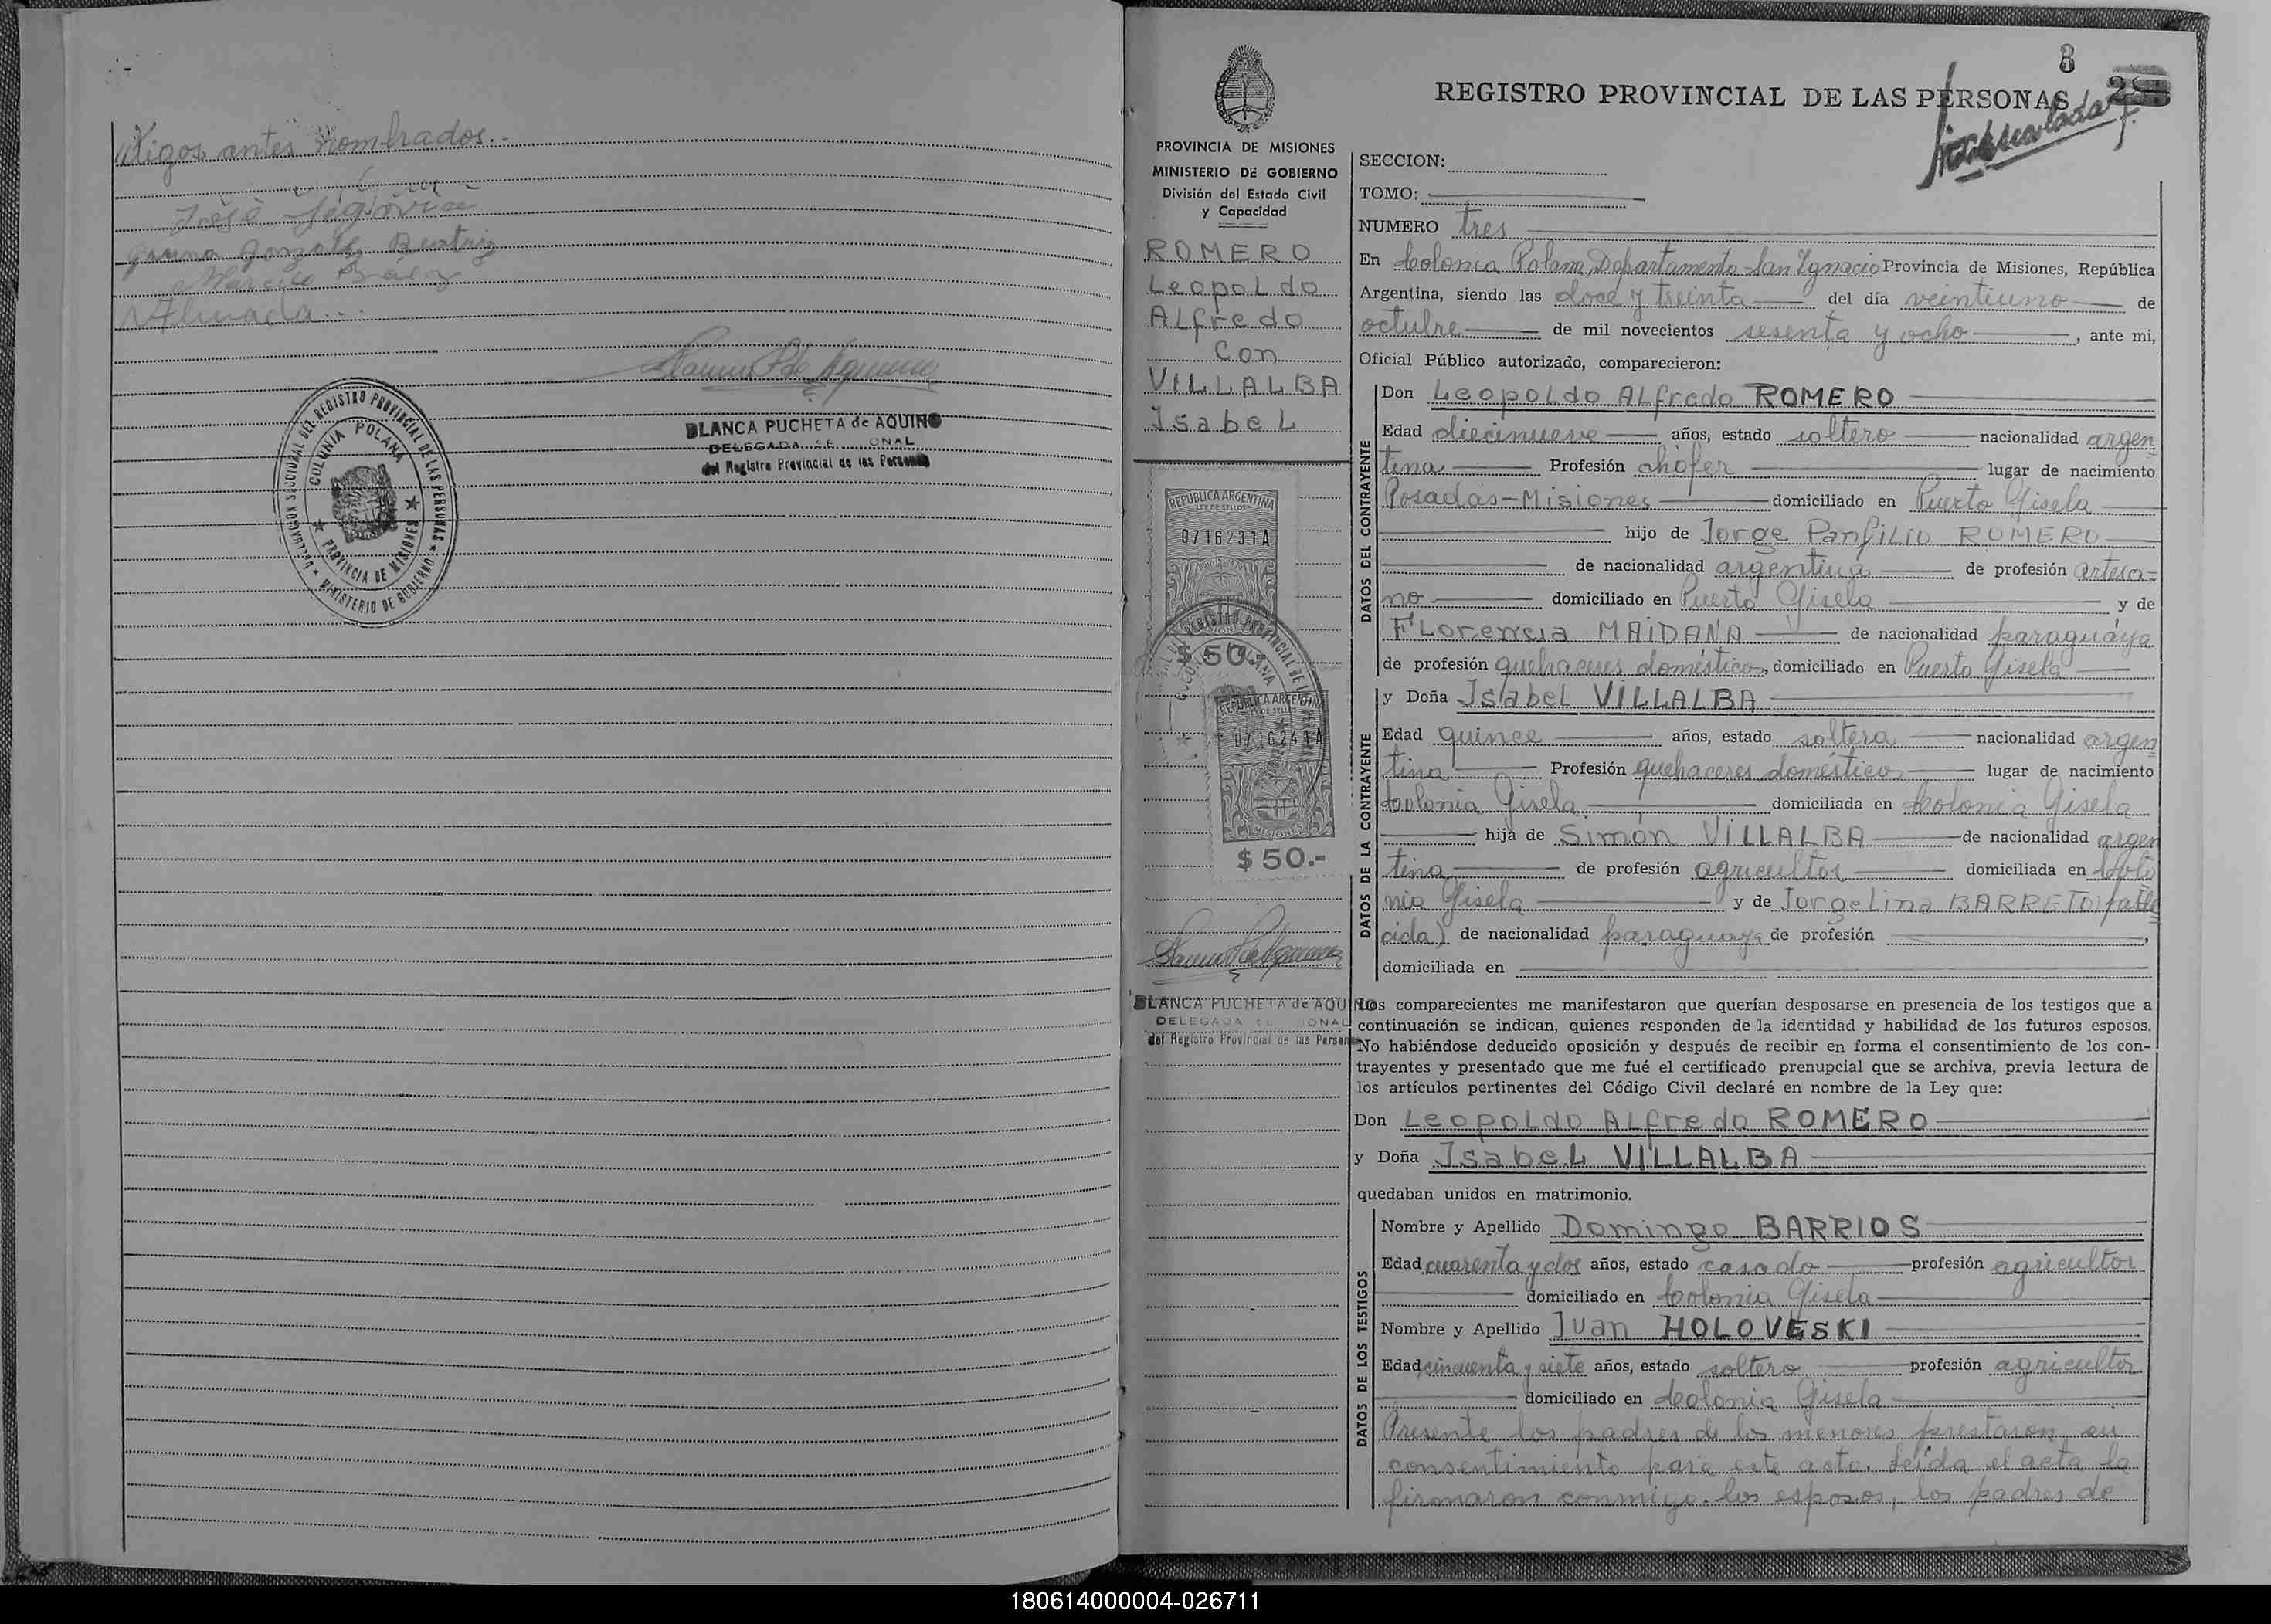 ///tigos antes nombrados.-
José Segovia
Gonzalez Beatriz
Marcelo Báez
BLANCA PUCHETA de AQUINO
DELEGADA SE ONAL
del Registro Provincial de las Personas
DELEGACION SECCIONAL DEL REGISTRO PROVINCIAL DE LAS PERSONAS
COLONIA POLANA
PROVINCIA DE MISIONES
MINISTERIO DE GOBIERNO
3
REGISTRO PROVINCIAL DE LAS PERSONAS
PROVINCIA DE MISIONES
MINISTERIO DE GOBIERNO
División del Estado Civil
y Capacidad
ROMERO
Leopoldo
Alfredo
Con
VILLALBA
Isabel
REPUBLICA ARGENTINA
LEY DE SELLOS
0716231A
$ 50.-
REPUBLICA ARGENTINA
0716241A
MISIONES
$ 50.-
BLANCA PUCHETA de AQUINO
DELEGADA SE ONAL
del Registro Provincial de las Personas
SECCION:
TOMO:
NUMERO tres
En Colonia Polana, Departamento San Ygnacio Provincia de Misiones, República
Argentina, siendo las doce y treinta del día veintiuno de
octubre de mil novecientos sesenta y ocho, ante mi,
Oficial Público autorizado, comparecieron:
DATOS DEL CONTRAYENTE
Don Leopoldo Alfredo ROMERO
Edad diecinueve años, estado soltero nacionalidad argen
tina Profesión chófer lugar de nacimiento
Posadas-Misiones domiciliado en Puerto Gisela
hijo de Jorge Panfilio ROMERO
de nacionalidad argentina de profesión artesa-
no domiciliado en Puerto Gisela y de
Florencia MAIDANA de nacionalidad paraguaya
de profesión quehaceres domésticos, domiciliado en Puerto Gisela
DATOS DE LA CONTRAYENTE
y Doña Isabel VILLALBA
Edad quince años, estado soltera nacionalidad argen
tina Profesión quehaceres domésticos lugar de nacimiento
Colonia Gisela domiciliada en Colonia Gisela
hija de Simón VILLALBA de nacionalidad argen
tina de profesión agricultor domiciliada en Colo
nia Gisela y de Jorgelina BARRETO (falle
cida) de nacionalidad paraguaya de profesión ,
domiciliada en
Los comparecientes me manifestaron que querían desposarse en presencia de los testigos que a
continuación se indican, quienes responden de la identidad y habilidad de los futuros esposos.
No habiéndose deducido oposición y después de recibir en forma el consentimiento de los con-
trayentes y presentado que me fué el certificado prenupcial que se archiva, previa lectura de
los artículos pertinentes del Código Civil declaré en nombre de la Ley que:
Don Leopoldo Alfredo ROMERO
y Doña Isabel VILLALBA
quedaban unidos en matrimonio.
DATOS DE LOS TESTIGOS
Nombre y Apellido Domingo BARRIOS
Edad cuarenta y dos años, estado casado profesión agricultor
domiciliado en Colonia Gisela
Nombre y Apellido Juan HOLOVESKI
Edad cincuenta y siete años, estado soltero profesión agricultor
domiciliado en Colonia Gisela
Presente los padres de los menores prestaron su
consentimiento para este acto. Leída el acta la
firmaron conmigo. los esposos, los padres de
180614000004-026711